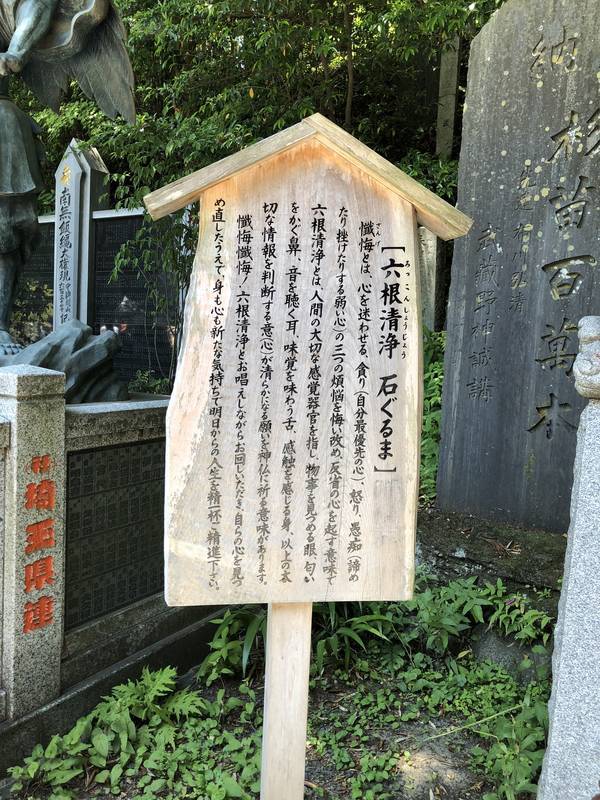 杉苗百萬本
武蔵野神誠講
ろっこんしょうじょう
[六根清浄 石ぐるま]
懺悔とは、心を迷わせる、貪り(自分最優先の心)、怒り、愚痴(諦め
たり挫けたりする弱い心)の三つの煩悩を悔い改め、反省の心を起す意味で
六根清浄とは人間の大切な感覚器官を指し、物事を見つめる眼、匂い
をかぐ鼻、音を聴く耳、味覚を味わう舌、感触を感じる身、以上の大
切な情報を判断する意(心)が清らかになる願いを神仏に祈る意味があります。
懺悔懺悔!六根清浄とお唱えしながらお回しいただき、自らの心を見つ
め直したうえで、身も心も新たな気持ちで明日からの人生を精一杯ご精進下さい。
南無飯縄大権現
埼玉県